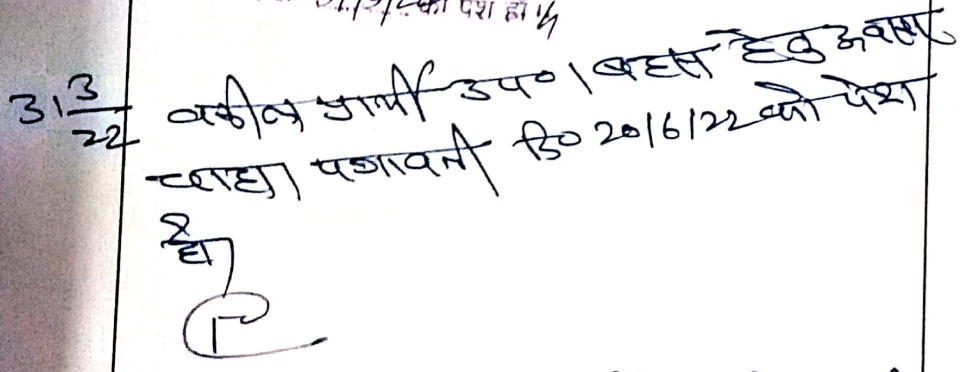 को पेश हो
31 3/22 वकील प्रार्थी उप० । बहस हेतु अवसर
चाहा। पत्रावली दि० 20/6/22 को पेश
हो।